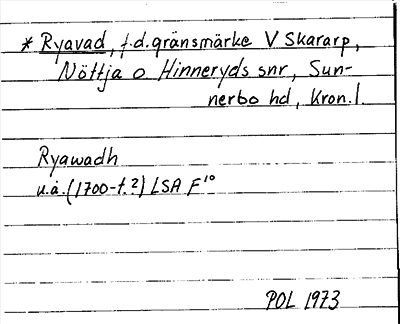 * Ryavad, f.d. gränsmärke V Skararp,
Nöttja o Hinneryds snr, Sun-
nerbo hd, Kron. l.
Ryawadh
u.å. (1700-t.?) LSA F¹⁰
POL 1973